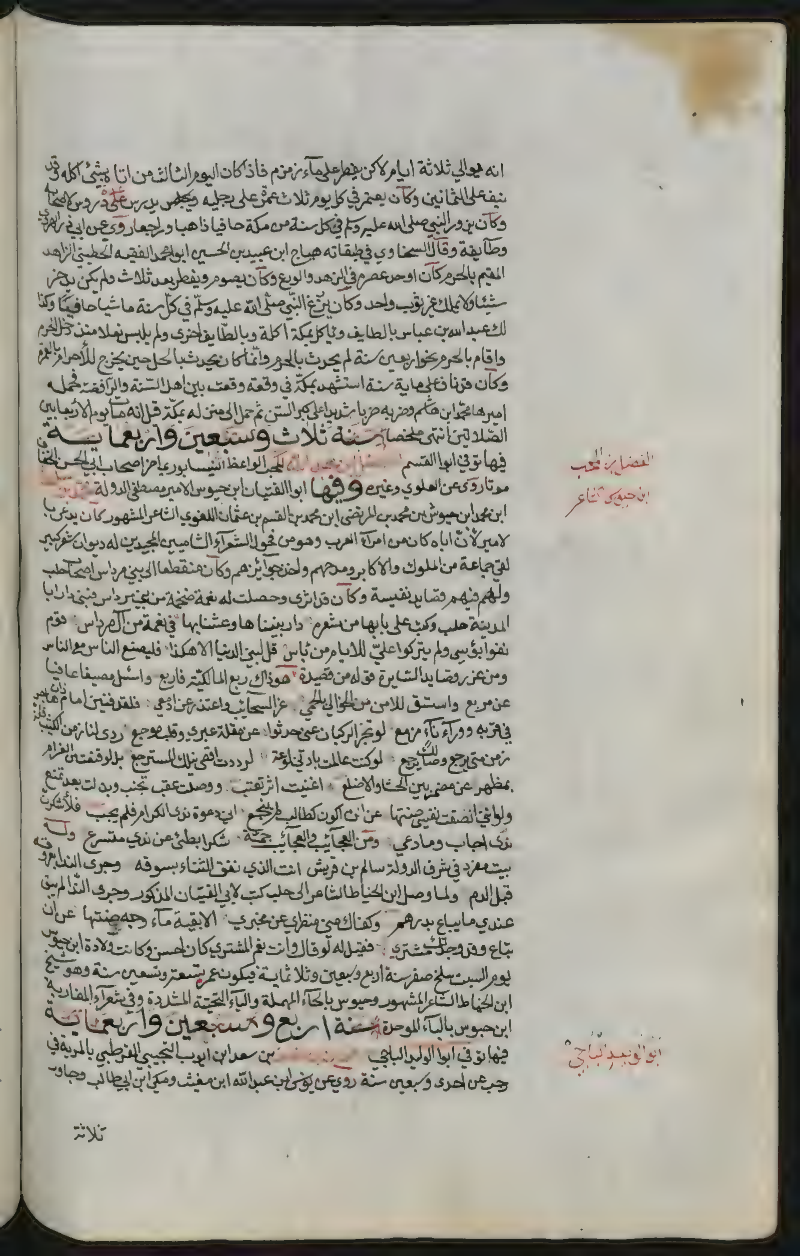 انه يوالي ثلاثة ايام لاكن يفطر على ماء زمزم فاذا كان اليوم الثالث من اتاه بشئ اكله وقد
نيف على الثمانين وكان يعتمر في كل يوم ثلاث عمر على رجليه ويدرس عدة دروس لاصحابه
وكان يزور النبي صلى الله عليه وسلم في كل سنة من مكة حافيا ذاهبا وراجعا روى عن ابي ذر الهروي
وطايفة وقال السخاوي في طبقاته هياج ابن عبيد بن الحسين ابو محمد الفقيه الحطيني الزاهد
المقيم بالحرم كان اوحد عصره في الزهد والورع وكان يصوم ويفطر بعد ثلاث ولم يكن يدخر
شيئا ولا يملك غير ثوب واحد وكان يزور النبي صلى الله عليه وسلم في كل سنة ماشيا حافيا وكذا
لك عبد الله بن عباس بالطايف وياكل بمكة اكلة وبالطايف اخرى ولم يلبس نعلا منذ دخل الحرم
واقام بالحرم نحو اربعين سنة لم يحدث بالحرم وانما كان يحدث بالحل حين يخرج للاحرام بالعمرة
وكان قد ناف على ماية سنة استشهد بمكة في وقعة وقعت بين اهل السنة والرافضة فحمله
اميرها محمد ابن هاشم وضربه ضربا شديدا على كبر السن ثم حمل الى منزله بمكة قيل انه مات يوم الاربعا بين
الصلاتين انتهى ملخصا سنة ثلاث وسبعين واربعماية
فيها توفي ابو القسم الفضل بن محمد المحب الواعظ النيسابوري اخر اصحاب ابي الحسن الخفاف
موتا روى عن العلوي وغيره وفيها ابو الفتيان ابن حيوس الامير مصطفى الدولة محمد بن سلطان
ابن محمد ابن حيوش بن محمد بن المرتضى ابن محمد بن القسم بن عثمان اللغوي الشاعر المشهور كان يدعى با
لامير لان اباه كان من امراء العرب وهو من فحول الشعراء الشاميين المجيدين له ديوان شعر كبير
لقي جماعة من الملوك والاكابر ومدحهم واخذ جوائزهم وكان منقطعا الى بني مرداس اصحاب حلب
وله فيهم قصايد نفيسة وكان قد اثرى وحصلت له نعمة ضخمة من بني مرداس فبنى دارا با
لمدينة حلب وكتب على بابها من شعره دار بنيناها وعشنا بها في نعمة من آل مرداس قوم
نفوا بؤسي ولم يتركوا علي للايام من باس قل لبني الدنيا الا هكذا فليصنع الناس مع الناس
ومن غرر قصايده السايرة قوله من قصيدة هو ذاك ربع المالكية فاربع واسئل مصيفا عافيا
عن مربع واستسق للدمن الخوالي بالحمى غر السحايب واعتذر عن ادمعي فلقد فنين امام دان هاجر
في قربه ووراء ناء مزمع لو تخبر الركبان عني حدثوا عن مقلة عبرى وقلب موجع ردي لنا زمن الكثيب فانه
زمن متى يرجع وصالك يرجع لو كنت عالمة بادنى لوعتي لرددت اقصى نيلك المسترجع بل لو قنعت من الغرام
بمظهر عن مضمر بين الحشا والاضلع اعتبت اثر تعتب ووصلت عقب تجنب وبذلت بعد تمنع
ولو انني انصفت نفسي صنتها عن ان اكون كطالب لم ينجع اني دعوت ندى الكرام فلم يجب فلاشكرن
ندى اجاب وما دعي ومن العجائب والعجائب جمة شكر بطئ عن ندي متسرع وله
بيت مفرد في شرف الدولة سالم بن قريش انت الذي نفق الثناء بسوقه وجرى الندا بعروقه
قبل الدم ولما وصل ابن الخياط الشاعر الى حلب كتب لابي الفتيان المذكور وجرى الندا لم يبق
عندي ما يباع بدرهم وكفاك مني منظري عن مخبري الا بقية ماء وجه صنتها عن ان
تباع وقد وجدتك مشتري فقيل له لو قال وانت نعم المشتري كان احسن وكانت ولادة ابن حيوس
يوم السبت سلخ صفر سنة اربع وسبعين وثلاثماية فيكون عمره تسعة وتسعين سنة وهو شيخ
ابن الخياط الشاعر المشهور وحيوس بالحاء المهملة والياء التحتية المشددة وفي شعراء المغاربة
ابن حبوس بالباء الموحدة سنة اربع وسبعين واربعماية
فيها توفي ابو الوليد الباجي بن سعد ابن ايوب التجيبي القرطبي بالمرية في
رجب عن احدى وسبعين سنة روى عن يونس ابن عبد الله ابن مغيث ومكي ابن ابي طالب وجاور
ثلاثة
الفضل بن المحب
ابن حيوس الشاعر
ابو الوليد الباجي